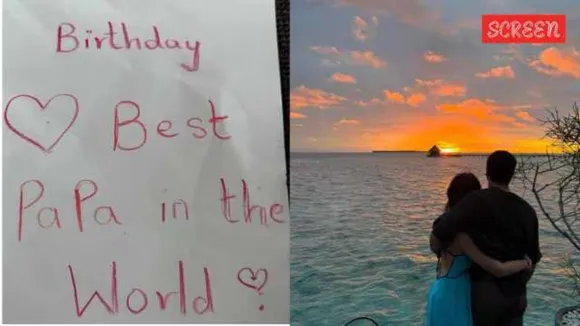 Birthday
Best
PaPa in the
World
SCREEN